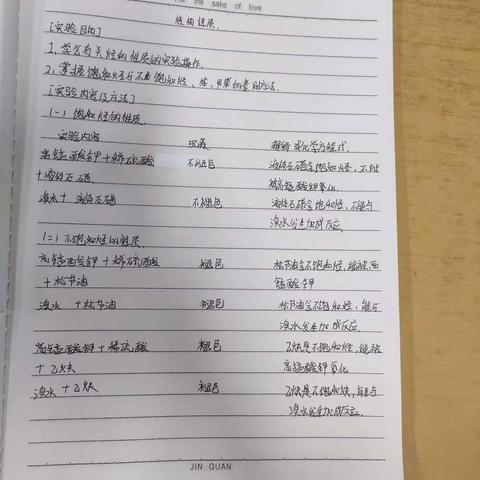 For the sake of love
烃的性质.
[实验目的]
1, 学会有关烃的性质的实验操作.
2, 掌握饱和烃与不饱和烃、苯、甲苯的鉴别方法.
[实验内容及方法]
(一) 饱和烃的性质.
实验内容 现象 解释或化学方程式.
高锰酸钾+稀硫酸 不褪色 液体石蜡含饱和烃, 不能
+液体石蜡. 被高锰酸钾氧化.
溴水+液体石蜡 不褪色 液体石蜡含饱和烃, 不能与
溴水发生加成反应.
(二) 不饱和烃的性质.
高锰酸钾+稀硫酸 褪色 松节油含不饱和烃, 能被高
+松节油 锰酸钾
溴水 +松节油 褪色 松节油含不饱和烃, 能与
溴水发生加成反应.
高锰酸钾+稀硫酸 褪色 乙炔是不饱和烃, 能被
+乙炔 高锰酸钾氧化
溴水+乙炔 褪色 乙炔是不饱和炔, 能与
溴水发生加成反应.
JIN QUAN